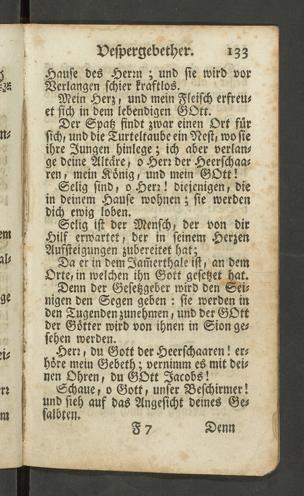 Vespergebether. 133
Hause des Herrn; und sie wird vor
Verlangen schier kraftlos.
Mein Herz, und mein Fleisch erfreu-
et sich in dem lebendigen GOtt.
Der Spatz findt zwar einen Ort für
sich, und die Turteltaube ein Nest, wo sie
ihre Jungen hinlege; ich aber verlan-
ge deine Altäre, o Herr der Heerschaa-
ren, mein König, und mein GOtt!
Selig sind, o Herr! diejenigen, die
in deinem Hause wohnen; sie werden
dich ewig loben.
Selig ist der Mensch, der von dir
Hilf erwartet, der in seinem Herzen
Aufsteigungen zubereitet hat;
Da er in dem Jam̄erthale ist, an dem
Orte, in welchen ihn Gott gesetzet hat.
Denn der Gesetzgeber wird den Sei-
nigen den Segen geben: sie werden in
den Tugenden zunehmen, und der GOtt
der Götter wird von ihnen in Sion ge-
sehen werden.
Herr, du Gott der Heerschaaren! er-
höre mein Gebeth; vernimm es mit dei-
nen Ohren, du GOtt Jacobs!
Schaue, o Gott, unser Beschirmer!
und sieh auf das Angesicht deines Ge-
salbten.
F 7 Denn